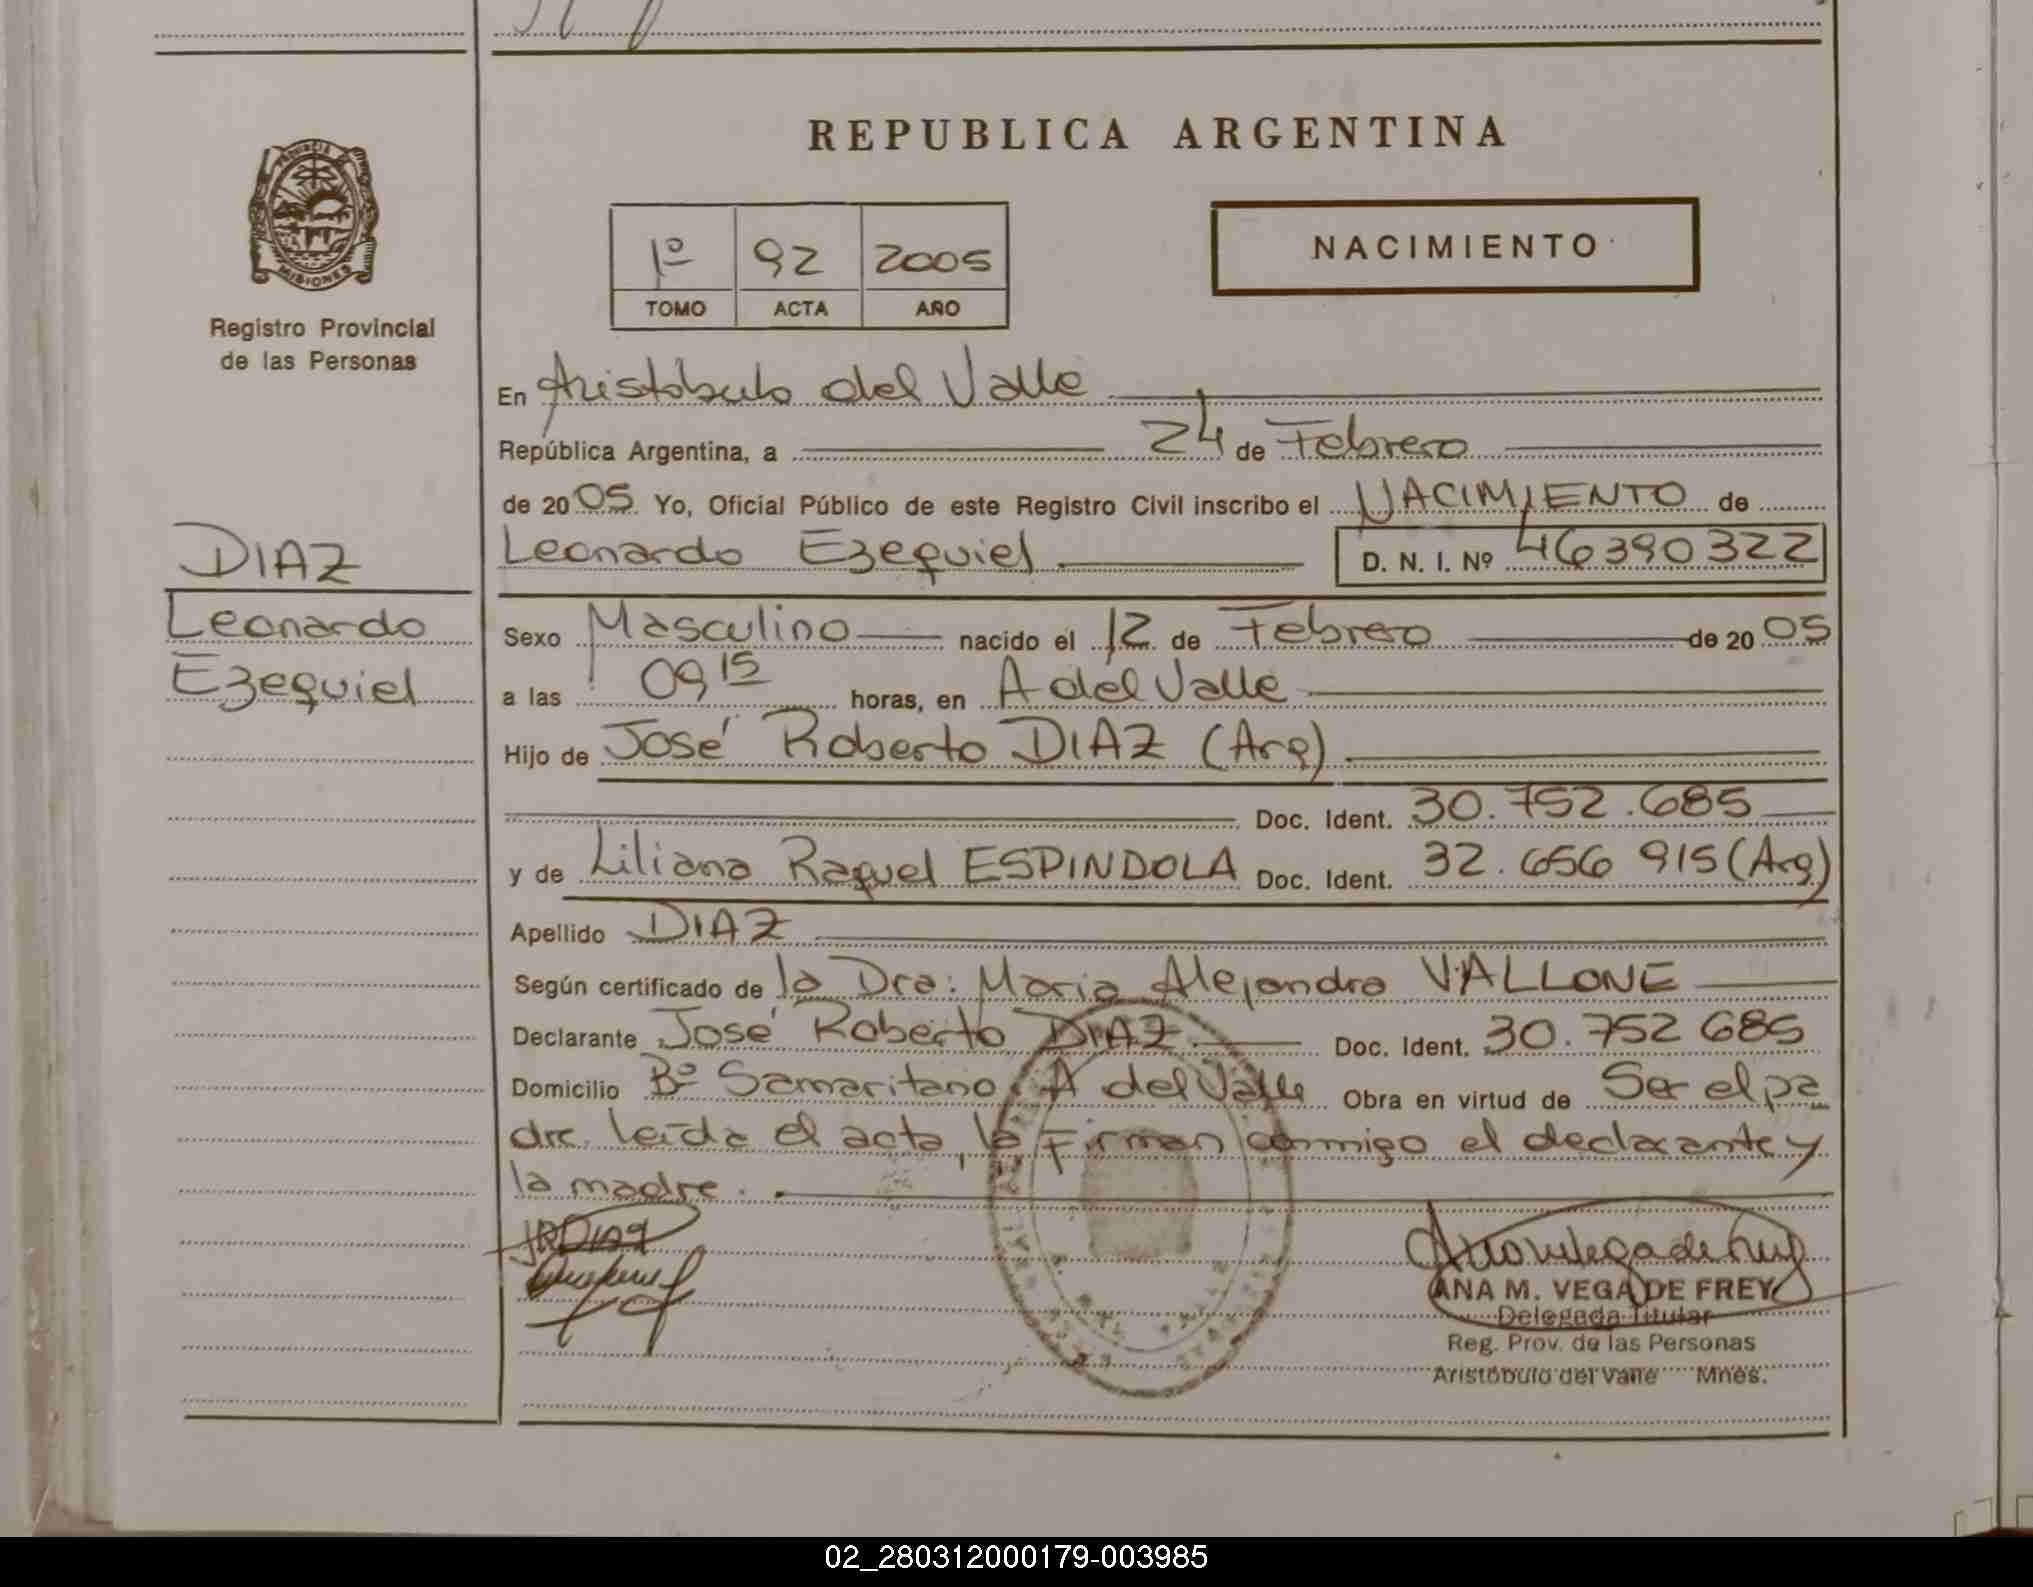 REPUBLICA ARGENTINA
PROVINCIA DE
MISIONES
Registro Provincial
de las Personas
1º 92 2005
TOMO ACTA AÑO
NACIMIENTO
DIAZ
Leonardo
Ezequiel
En Aristóbulo del Valle
República Argentina, a 24 de Febrero
de 2005. Yo, Oficial Público de este Registro Civil inscribo el NACIMIENTO de
Leonardo Ezequiel D. N. I. Nº 46390322
Sexo Masculino nacido el 12 de Febrero de 2005
a las 09 15 horas, en A del Valle
Hijo de José Roberto DIAZ (Arg)
Doc. Ident. 30.752.685
y de Liliana Raquel ESPINDOLA Doc. Ident. 32.656 915 (Arg)
Apellido DIAZ
Según certificado de la Dra: Maria Alejandra VALLONE
Declarante José Roberto DIAZ. Doc. Ident. 30.752 685
Domicilio Bº Samaritano. A del Valle Obra en virtud de Ser el pa
dre. leída el acta, la Firman conmigo el declarante y
la madre.
JRDIAZ
ANA M. VEGA DE FREY
Delegada Titular
Reg. Prov. de las Personas
Aristóbulo del Valle Mnes.
02_280312000179-003985